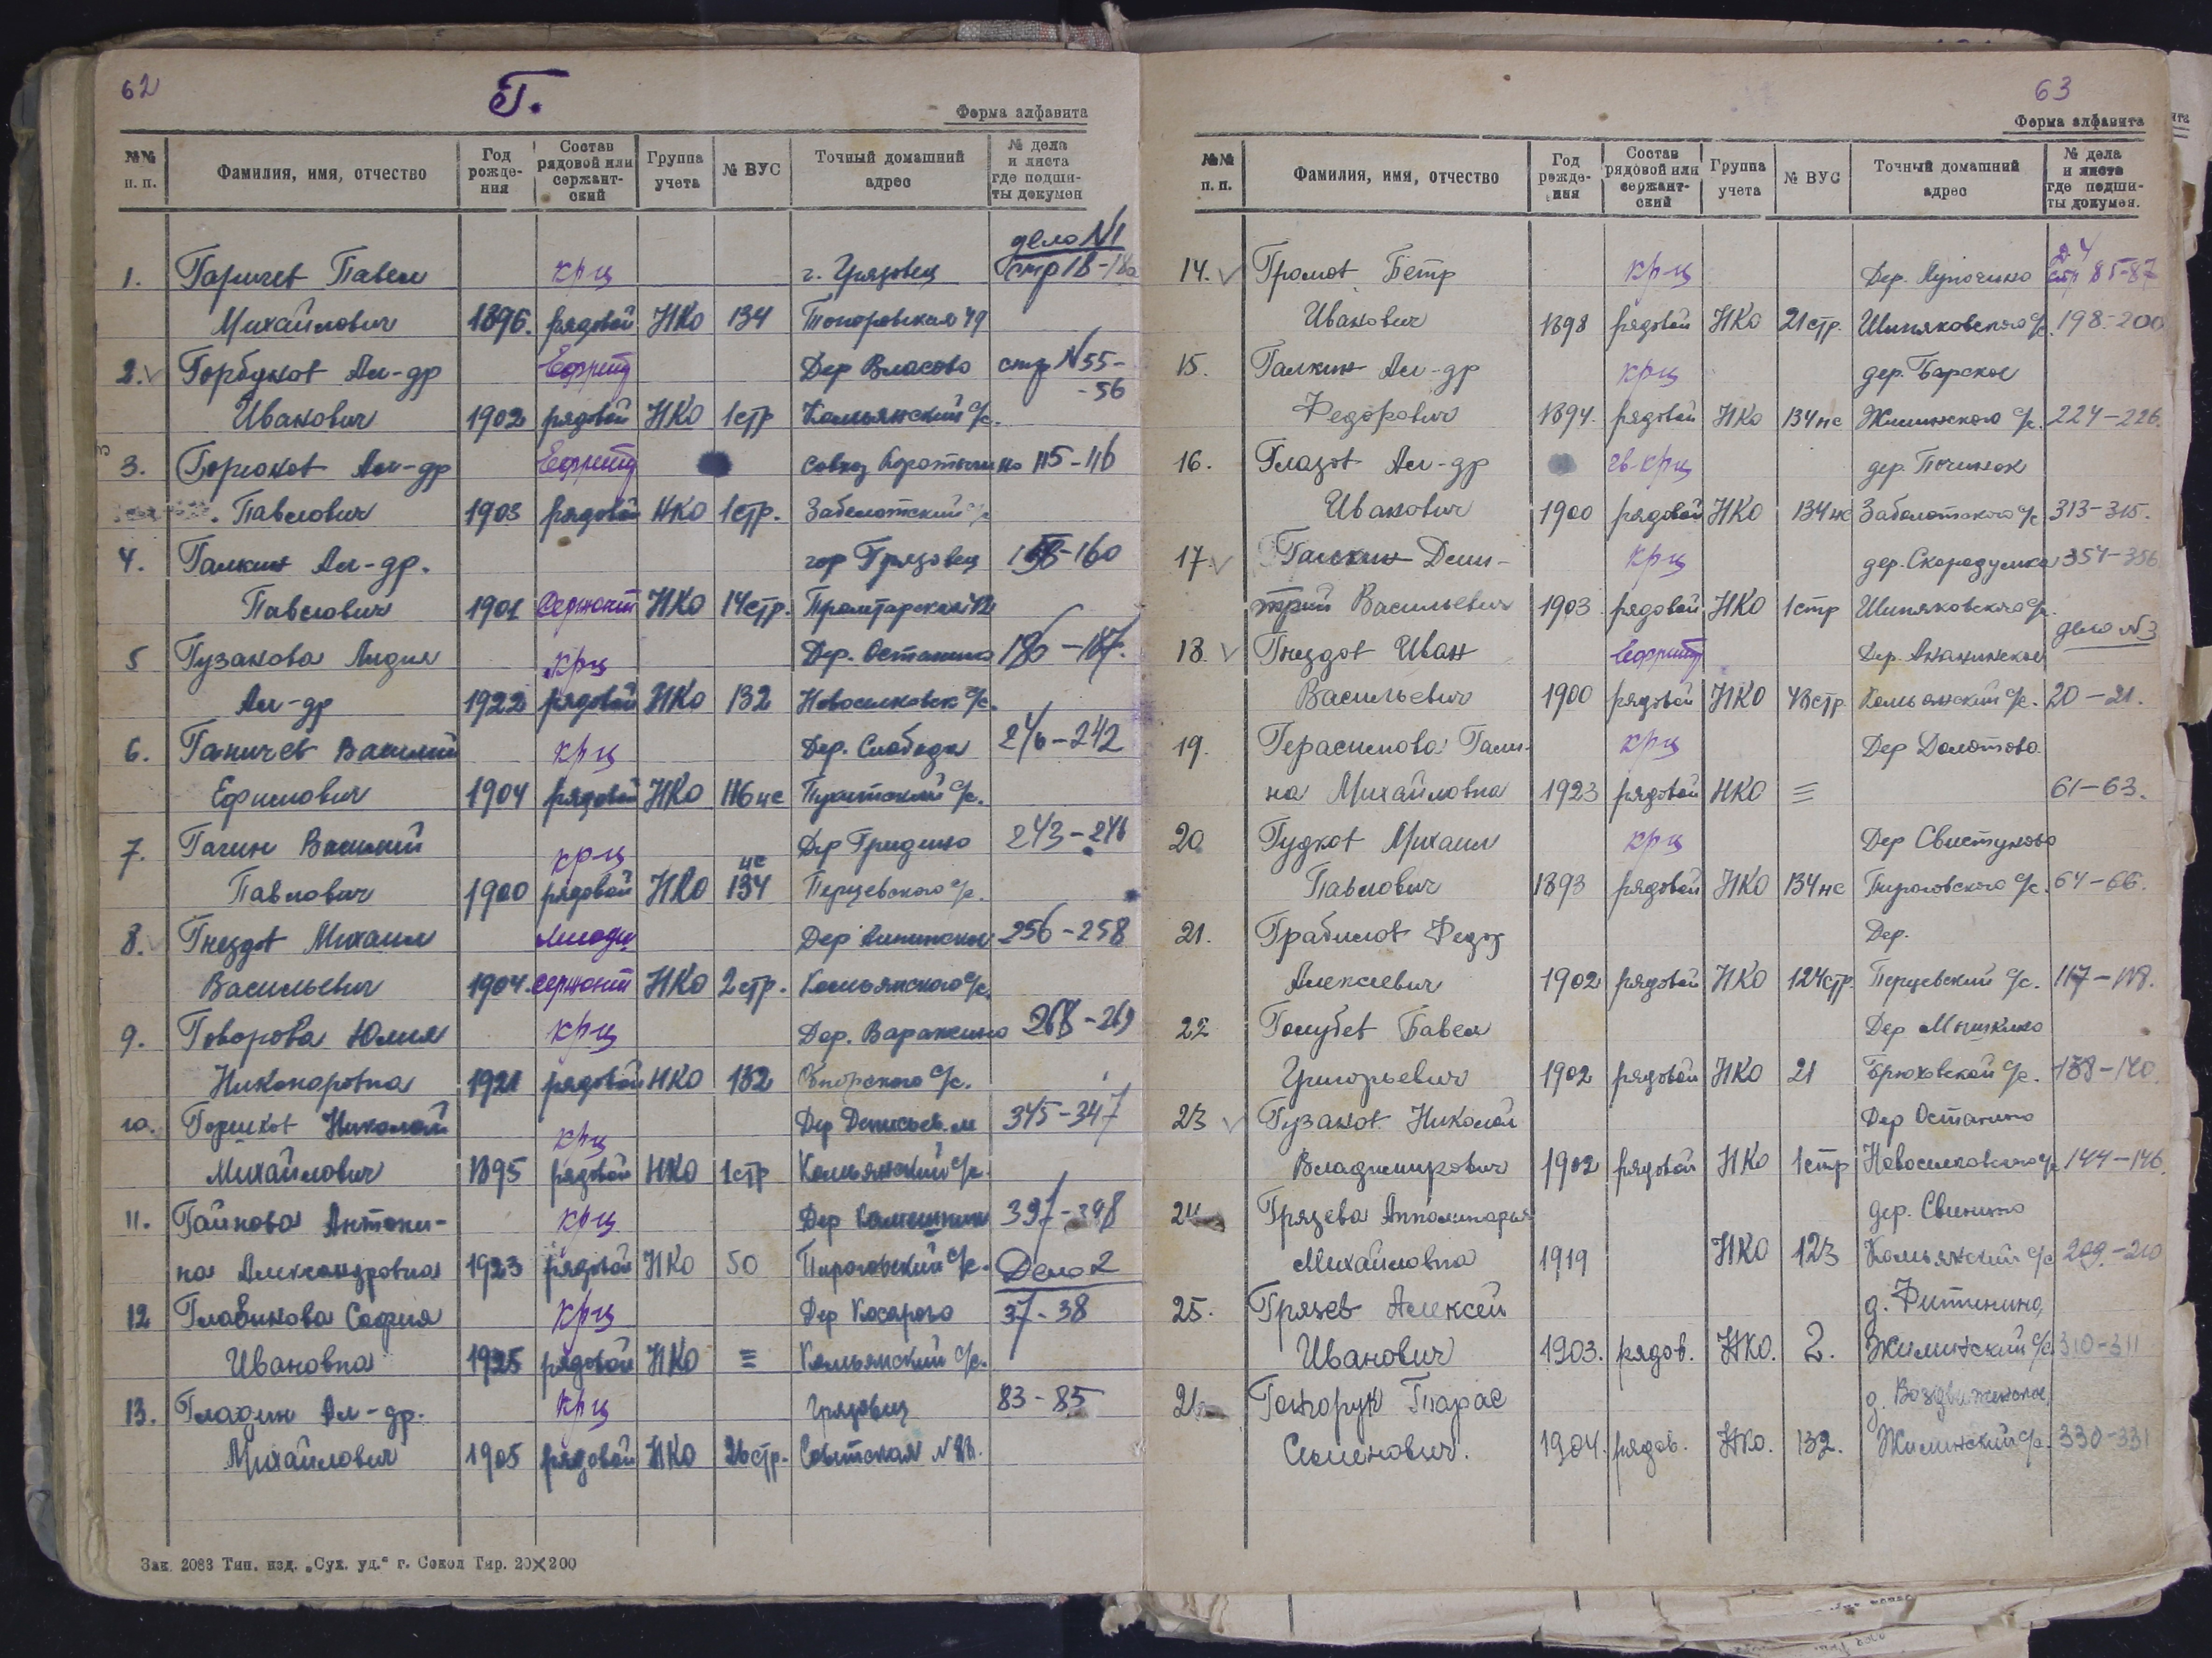 62
Г.
Форма алфавита
№№ п. п. Фамилия, имя, отчество Год рожде-ния Состав рядовой или сержант-ский Группа учета № ВУС Точный домашний адрес № дела и листа где подши-ты докумен
дело №1
1. Гаричев Павел крц г. Грязовец стр 18-18а
Михайлович 1896. рядовой НКО 134 Топоровская 49
2. Горбунов Ал-др Ефрейт Дер Власово стр №55-
-56
Иванович 1902 рядовой НКО 1стр Комьянский с/с.
3. Горюнов Ал-др Ефрейт совхоз Коротыгино 115-116
Павлович 1903 рядовой НКО 1стр. Заболотский с/с
4. Галкин Ал-др. гор Грязовец 158-160
Павлович 1901 Сержант НКО 14стр. Пролетарская 42
5 Гузанова Лидия крц Дер. Останино 186-187.
Ал-др 1922 рядовой НКО 132 Новоселковск с/с.
6. Ганичев Василий крц Дер. Слобода 241-242
Ефимович 1904 рядовой НКО 116нс с/с.
7. Гагин Василий крц Дер Гридино 243-246
Павлович 1900 рядовой НКО 134 нс Перцевского с/с.
8. Гнездов Михаил Младш Дер 256-258
Васильевич 1904. сержант НКО 2стр. Комьянского с/с.
9. Говорова Юлия крц Дер. Варакшино 268-269
Никоноровна 1921 рядовой НКО 132 с/с.
10. Горшков Николай крц Дер Денисьев.м 345-347
Михайлович 1895 рядовой НКО 1стр Комьянский с/с.
11. Гайнова Антони- крц Дер Камешник 397-398
на Александровна 1923 рядовой НКО 50 Пироговский с/с. Дело 2
12 Главинова София крц Дер Косарово 37-38
Ивановна 1925 рядовой НКО = Комьянский с/с.
13. Гладин Ал-др. крц Грязовец 83-85
Михайлович 1905 рядовой НКО 26стр. Советская №88.
Зак. 2083 Тип. изд. „Сух. уд.“ г. Сокол Тир. 20×200
63
Форма алфавита
№№ п. п. Фамилия, имя, отчество Год рожде-ния Состав рядовой или сержант-ский Группа учета № ВУС Точный домашний адрес № дела и листа где подши-ты докумен.
14. Громов Петр крц Дер. Лупочино стр 85-87
Иванович 1898 рядовой НКО 21стр. Шипяковского с/с. 198-200
15. Галкин Ал-др крц дер. Барское
Федорович 1894. рядовой НКО 134нс Жилинского с/с. 224-226.
16. Глазов Ал-др гв-крц дер. Починок
Иванович 1900 рядовой НКО 134нс Заболотского с/с 313-315.
17. Галкин Дми- крц дер. Скородумка 354-356
трий Васильевич 1903 рядовой НКО 1стр Шипяковского с/с.
дело №3
18. Гнездов Иван Ефрейт Дер. Ананинское
Васильевич 1900 рядовой НКО 43стр. Комьянский с/с. 20-21.
19. Герасимова Гали- крц Дер Долотово
на Михайловна 1923 рядовой НКО = 61-63.
20 Гудков Михаил крц Дер Свистуново
Павлович 1893 рядовой НКО 134нс Пироговского с/с. 64-66.
21. Грабилов Федор Дер.
Алексеевич 1902 рядовой НКО 124стр. Перцевский с/с. 117-118.
22 Голубев Павел Дер Мышкино
Григорьевич 1902 рядовой НКО 21 Брюховской с/с. 138-140.
23 Гузанов Николай Дер Останино
Владимирович 1902 рядовой НКО 1стр Новоселковского с/с 144-146.
24 Грязева Апполинария дер. Свинино
Михайловна 1919 НКО 123 Комьянский с/с 209-210
25. Грязев Алексей д. Фитинино,
Иванович 1903. рядов. НКО. 2. Жилинский с/с 310-311
26 Гонгорук Тарас д. Воздвиженское,
Семенович. 1904. рядов. НКО. 132. Жилинский с/с. 330-331